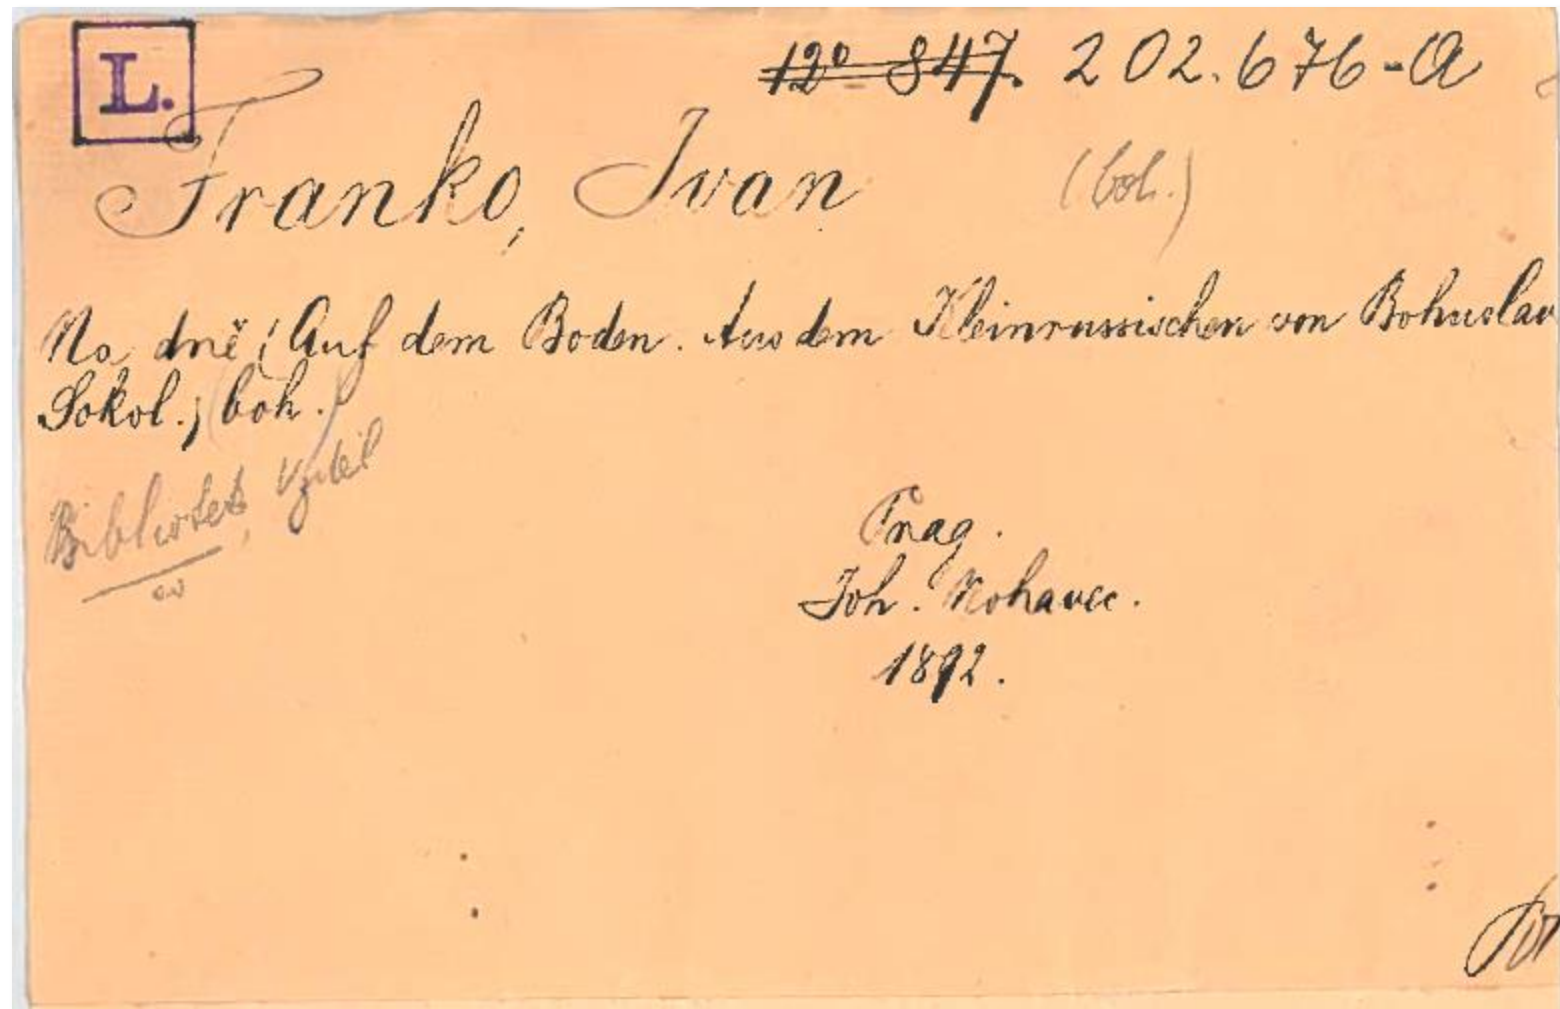 L.
12° 847. 202.676-A
Franko, Ivan (boh.)
Na dně (Auf dem Boden. Aus dem Kleinrussischen von Bohuslav
Sokol.; boh.)
Bibliotek,
Prag.
Joh.
1892.